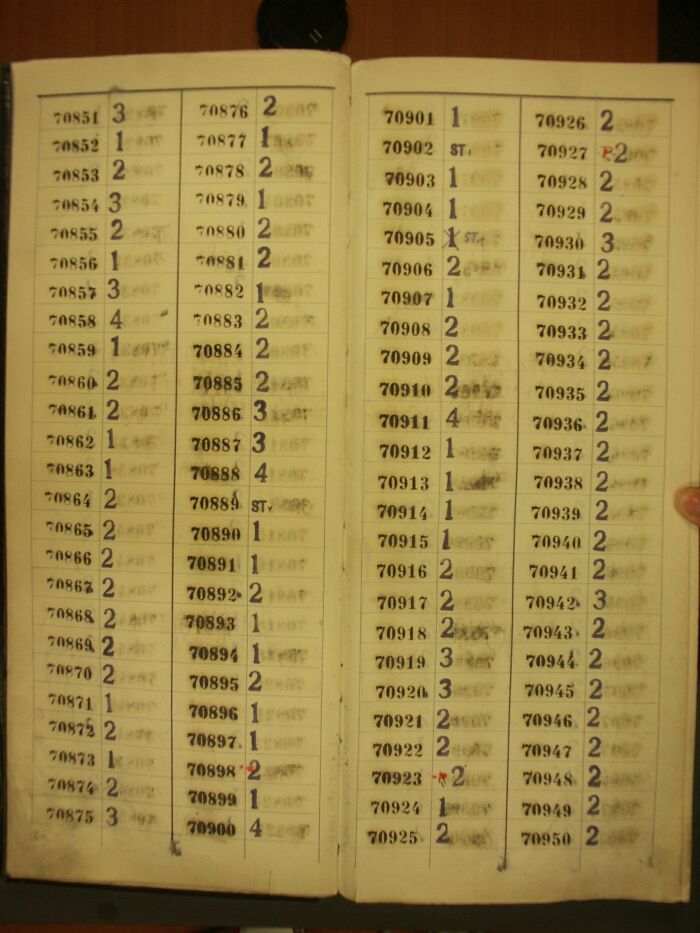 70851 3
70852 1
70853 2
70854 3
70855 2
70856 1
70857 3
70858 4
70859 1
70860 2
70861 2
70862 1
70863 1
70864 2
70865 2
70866 2
70867 2
70868 2
70869 2
70870 2
70871 1
70872 2
70873 1
70874 2
70875 3
70876 2
70877 1
70878 2
70879 1
70880 2
70881 2
70882 1
70883 2
70884 2
70885 2
70886 3
70887 3
70888 4
70889 ST.
70890 1
70891 1
70892 2
70893 1
70894 1
70895 2
70896 1
70897 1
70898 2
70899 1
70900 4
70901 1
70902 ST.
70903 1
70904 1
70905 1 ST.
70906 2
70907 1
70908 2
70909 2
70910 2
70911 4
70912 1
70913 1
70914 1
70915 1
70916 2
70917 2
70918 2
70919 3
70920 3
70921 2
70922 2
70923 R 2
70924 1
70925 2
70926 2
70927 R 2
70928 2
70929 2
70930 3
70931 2
70932 2
70933 2
70934 2
70935 2
70936 2
70937 2
70938 2
70939 2
70940 2
70941 2
70942 3
70943 2
70944 2
70945 2
70946 2
70947 2
70948 2
70949 2
70950 2